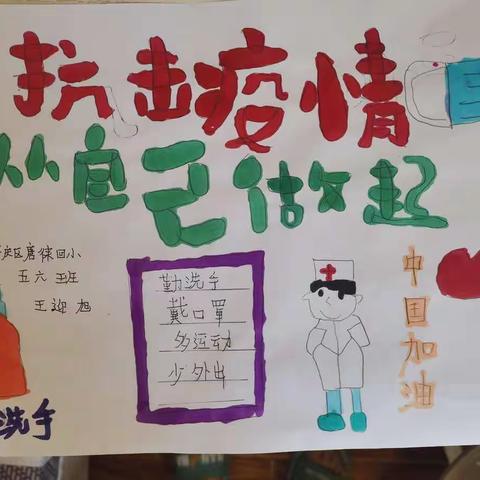 抗击疫情
从自己做起
庆区唐徕回小
五六班
王迎旭
勤洗手
戴口罩
多运动
少外出
中国加油
洗手